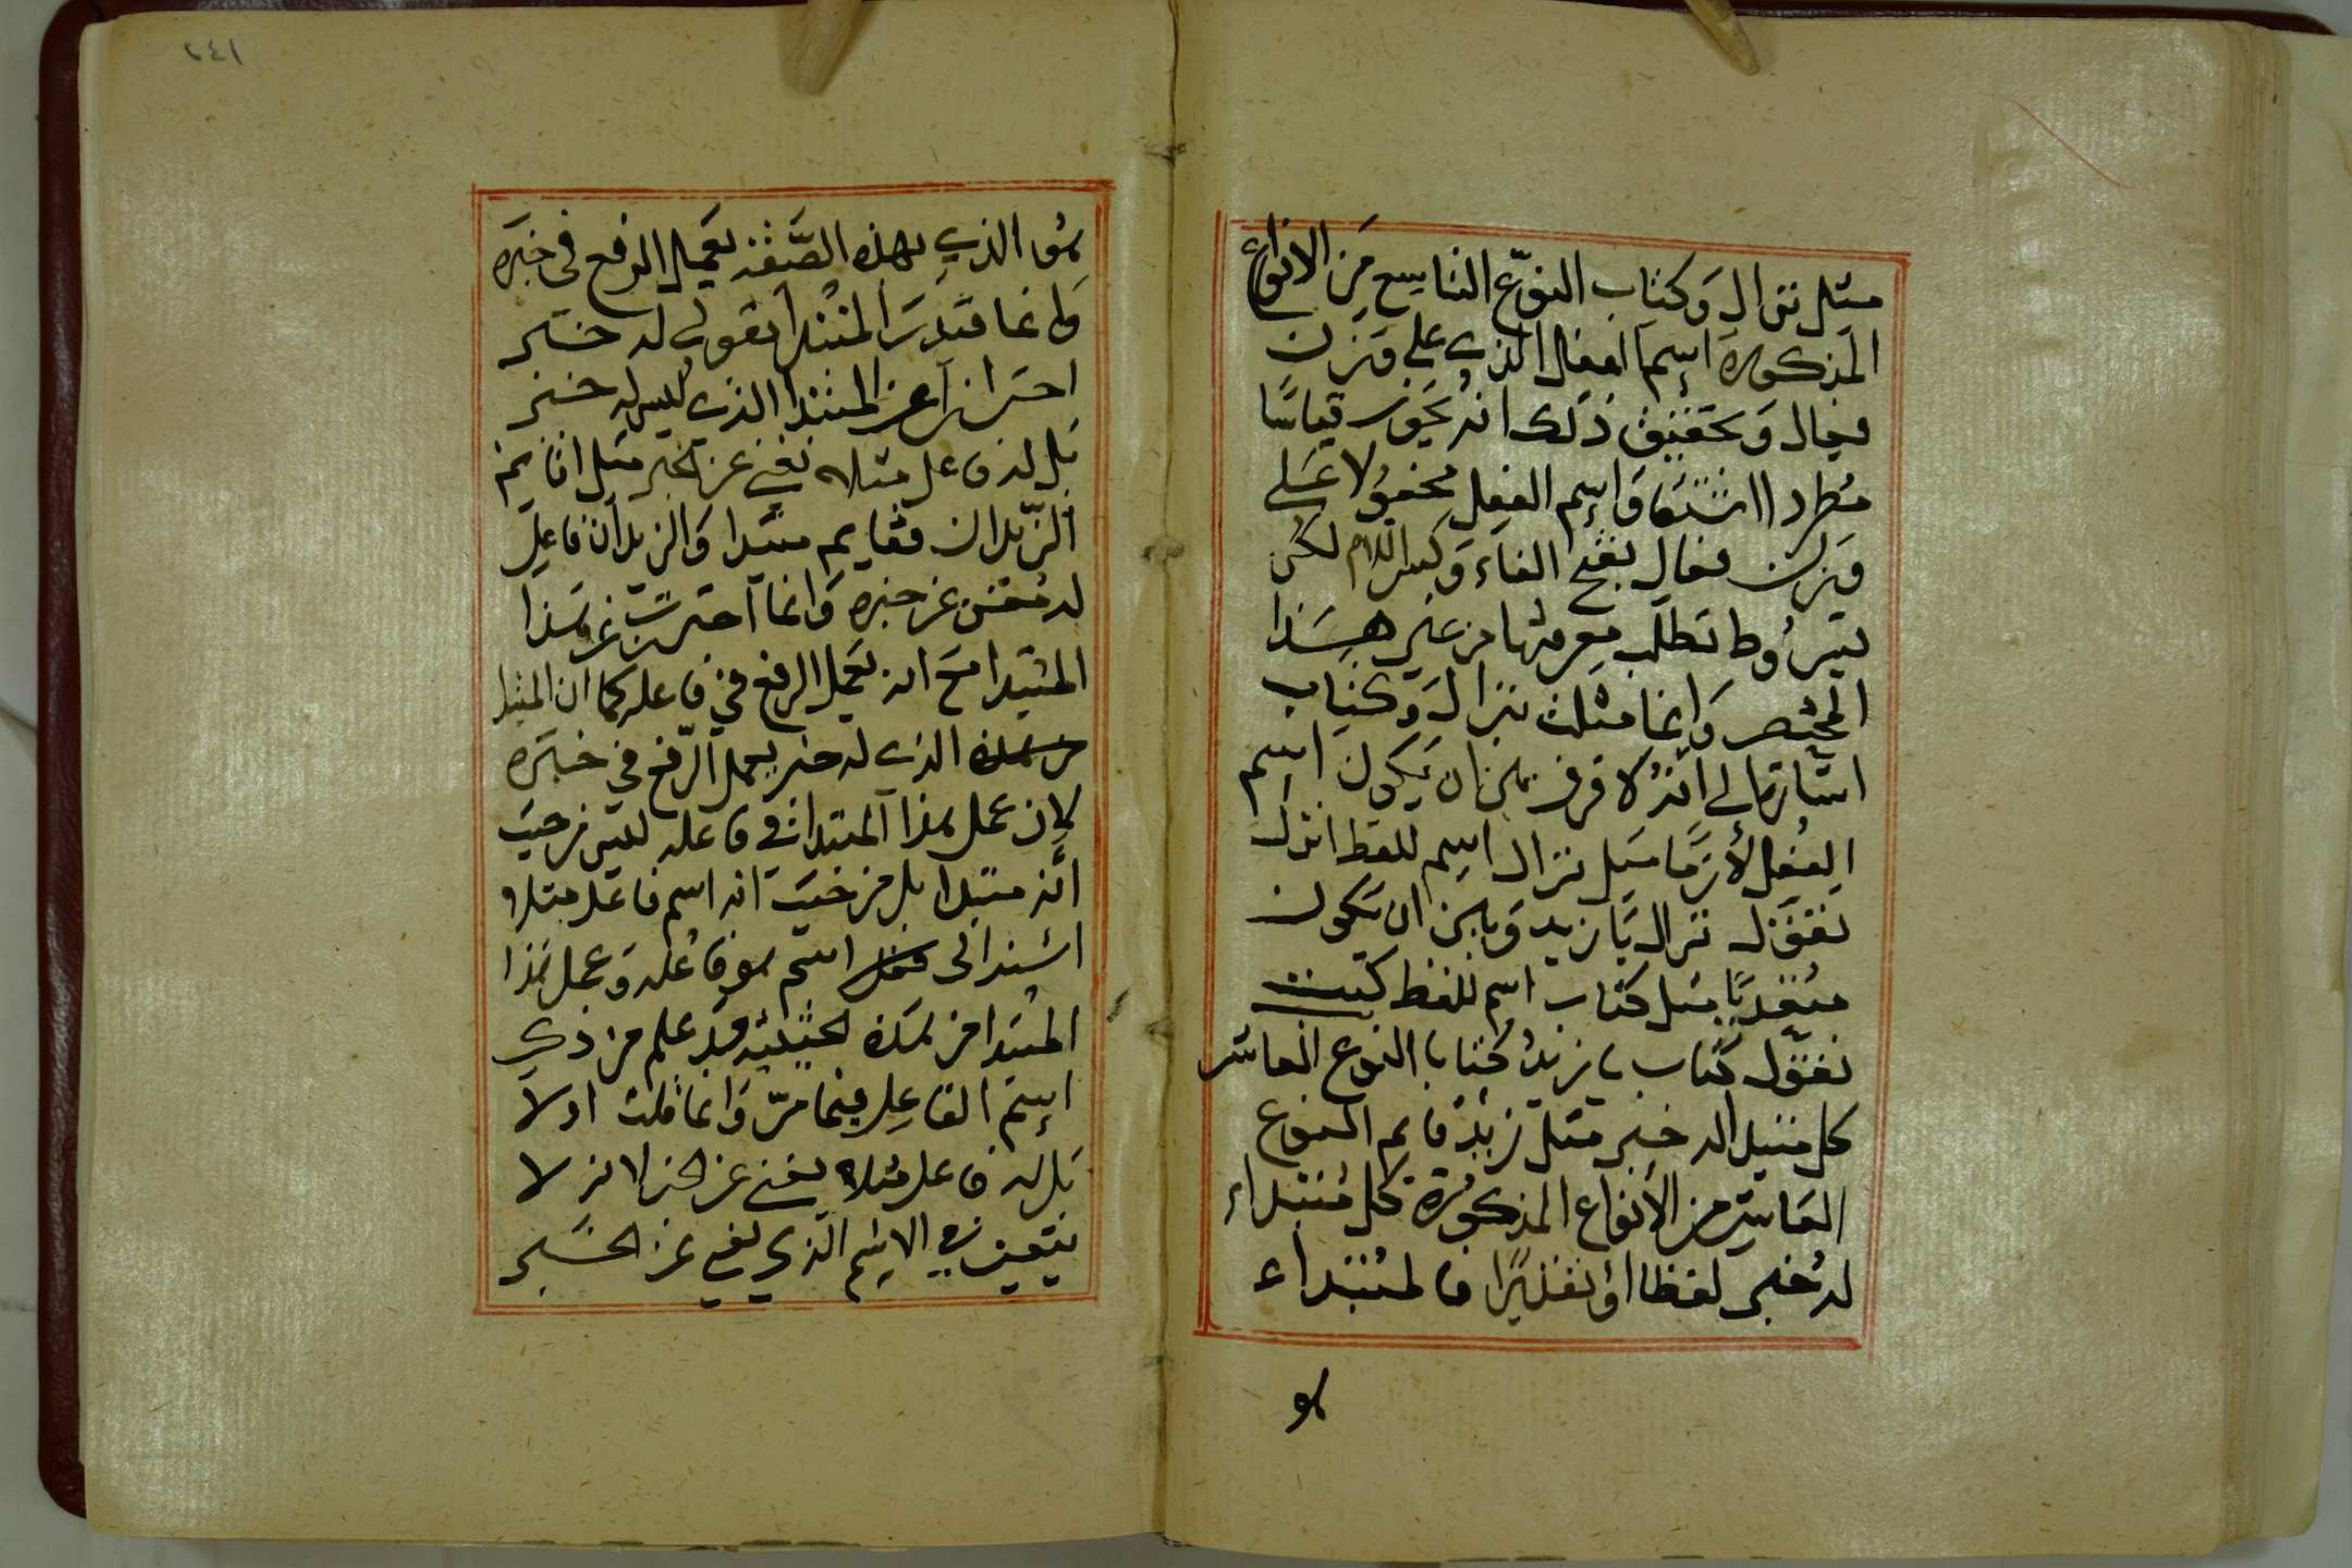 مثل نزال وَكتاب النوّع التاسِع مَن الانواع
المذكورة اسم الفعل الذي على وَزن
فعال وَتحقيق ذلك انه يجَوز قياسًا
مطردا اشتقاق اسِم الفعل محمولا عَلى
وَزن فعال بفتح الفاء وَكسر اللام لكن
بشرُوط تطلَب معرفتها من غير هَذا
المختصر وَانما مثلت بنزال وَكتاب
اشارة الى انّه لا فرق بين ان يَكون اسِم
الفعل لازمًا مثَل نزال اسِم للفظ انزل
تقوَل نزال يَا زيد وَبين ان يَكون
متعديًا مثل كتاب اسم للفظ كتبت
تقوّل كتاب يا زيد كتابا النوع العاشر
كل مبتدا له خبر مثل زيد قايم النوع
العَاشر من الأنواع المذكورَة كل مُبتداء
له خبر لفظا اوْ تقديرًا فالمُبتداء
هو
٢٤١
هو الذي بهذه الصَّفة يعمَل الرفع في خبَره
وَانما قيدت المبتدا بقولي له خبر
احترازا عن المبتدا الذي ليس له خبر
بَل له فاعل مثلا يغني عن الخبر مثل اقايم
الزّيدان فقايم مبتدا وَالزيدان فاعل
له مُغن عن خبره وَانما احترزت عن هَذا
المبتدا مَع انه يعَمل الرفع في فاعله كما ان المبتدا
الذي له خبر يعمل الرّفع في خبَره
لان عمل هذا المبتدا في فاعله ليس من حيث
انّه مبتدا بل من حيَث انه اسم فاعل مبتدا
اسند الى اسم هو فاعله وَعمل هذا
المبتدا من هَذه الحيثية قد علم من ذكر
اسِم الفاعِل فيما مرّ وَانما قلت اولا
بَل له فاعل مثلا يغني عن الخبر لانه لا
يتعين في الاسِم الذي يغني عن الخَبر